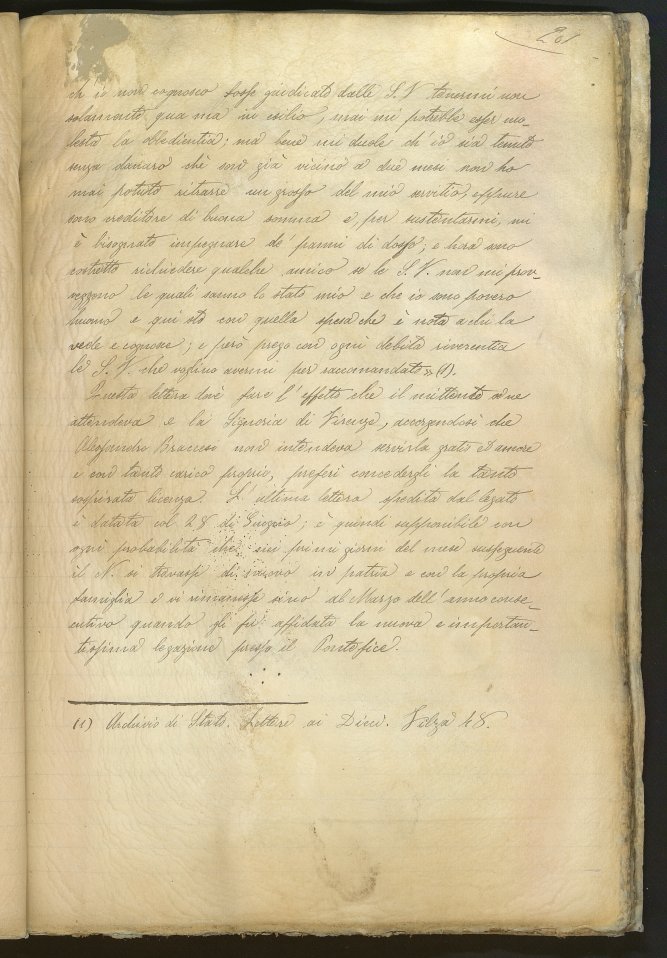 201
ch'io non cognosco fosse giudicato dalle S. V. tenermi non
solamente qua ma in esilio, mai mi potrebbe esser mo-
lesta la obbedientia; ma bene mi duole ch'io sia tenuto
senza danaro chè son già vicino a due mesi non ho
mai potuto ritrarre un grosso del mio servitio, eppure
sono creditore di buona somma e, per sustentarmi, mi
è bisognato impegnare de' panni di dosso; e hora sono
costretto richiedere qualche amico se le S. V. non mi prov-
veggono le quali sanno lo stato mio e che io sono povero
huomo e qui sto con quella spesa che è nota a chi la
vede e cognosce; e però prego con ogni debita riverentia
le S. V. che voglino avermi per raccomandato» (1).
Questa lettera dovè fare l'effetto che il mittente ne
attendeva e la Signoria di Firenze, accorgendosi che
Alessandro Braccesi non intendeva servirla gratis et amore
e con tanto carico proprio, preferì concedergli la tanto
sospirata licenza. L'ultima lettera spedita dal legato
è datata col 28 di Giugno; è quindi supponibile con
ogni probabilità che nei primi giorni del mese susseguente
il N. si trovasse di nuovo in patria e con la propria
famiglia e vi rimanesse sino al Marzo dell'anno conse-
cutivo quando gli fu affidata la nuova e importan-
tissima legazione presso il Pontefice.
(1) Archivio di Stato. Lettere ai Dieci. Filza 48.